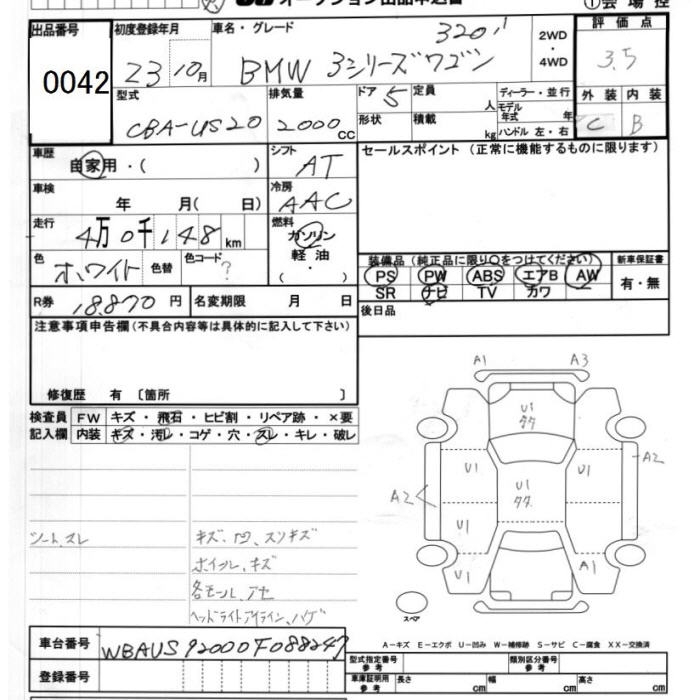 ①会場控
出品番号 初度登録年月 車名・グレード 評価点
0042 23 10月 BMW 3シリーズワゴン 320i 2WD・4WD 3.5
型式 排気量 ドア 定員 ディーラー・並行 外装 内装
CBA-US20 2000cc 5 人 モデル年式 年 C B
形状 積載 kg ハンドル 左・右
車歴 自家用・( ) シフト AT セールスポイント(正常に機能するものに限ります)
車検 年 月( 日) 冷房 AAC
走行 4万0千148km 燃料 ガソリン 軽油・( )
色 ホワイト 色替 色コード ? 装備品(純正品に限り○をつけてください) 新車保証書
PS PW ABS エアB AW 有・無
SR ナビ TV カワ
R券 18,870円 名変期限 月 日 後日品
注意事項申告欄(不具合内容等は具体的に記入して下さい)
修復歴 有 〔箇所 〕
検査員 FW キズ・飛石・ヒビ割・リペア跡・×要
記入欄 内装 キズ・汚レ・コゲ・穴・スレ・キレ・破レ
シート、スレ キズ、凹、スリキズ
ホイール、キズ
各モール、アセ
ヘッドライトアイライン、ハゲ
A1 A3
U1
タタ
U1 U1 A2
U1
タタ
A2
U1
U1 A1
スペア
A-キズ E-エクボ U-凹み W-補修跡 S-サビ C-腐食 XX-交換済
車台番号 WBAUS92000F088247
型式指定番号 参考 類別区分番号 参考
登録番号 車庫証明用 参考 長さ cm 幅 cm 高さ cm